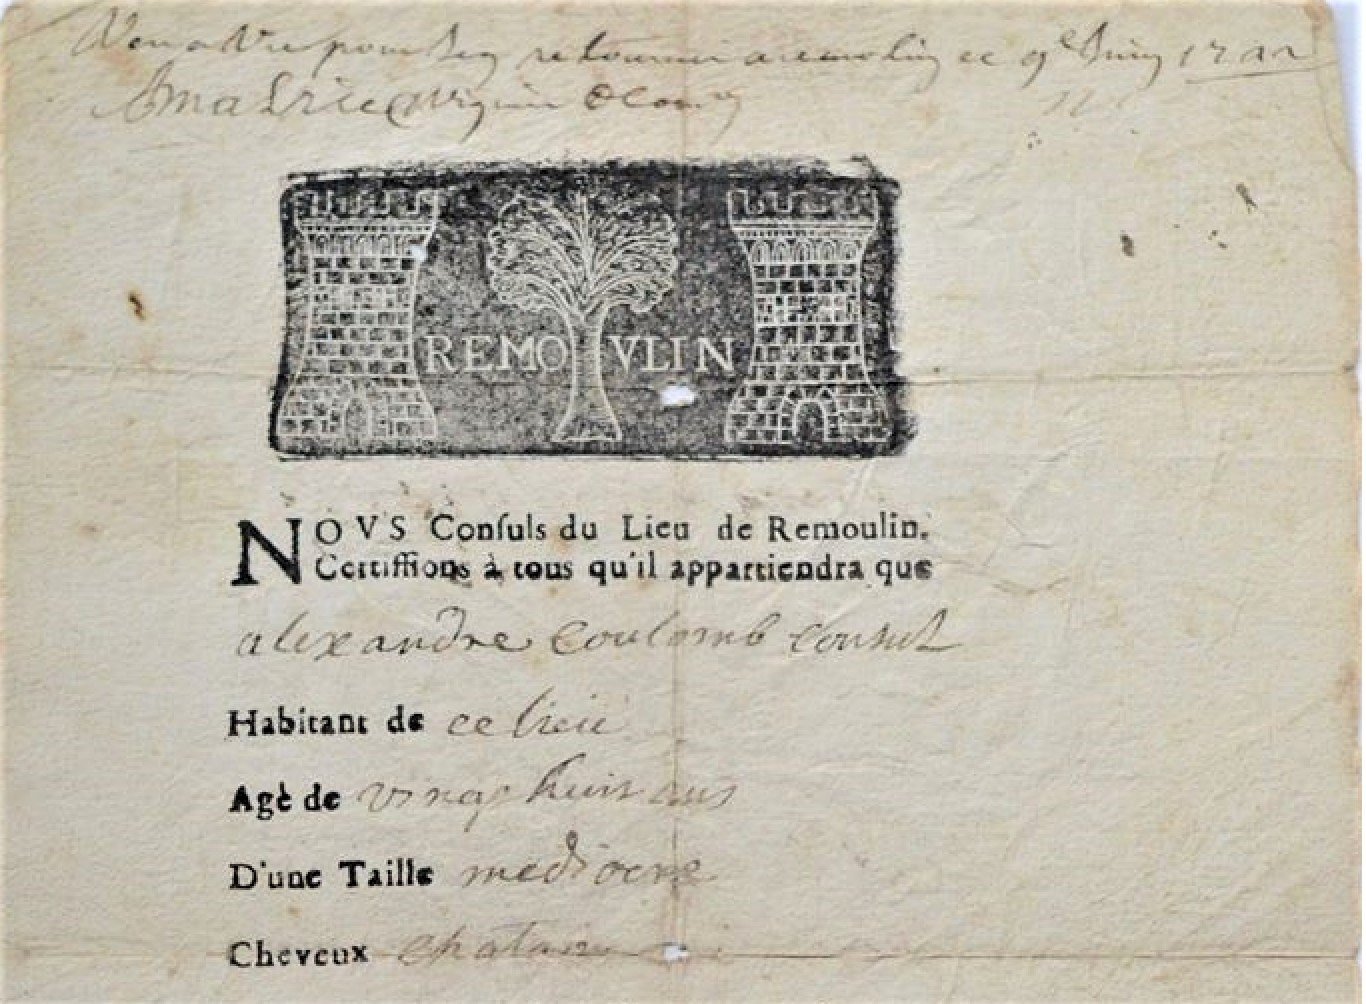 pour retourner a remoulin ce 9e Juin 17
REMOVLIN
NOVS Conſuls du Lieu de Remoulin.
Certiffions à tous qu'il appartiendra que
alexandre coulomb consul
Habitant de ce lieu
Agè de vingt huit ans
D'une Taille mediocre
Cheveux chatain